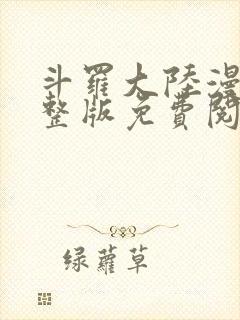 斗羅大陸漫
整版免費閱
绿蘿草